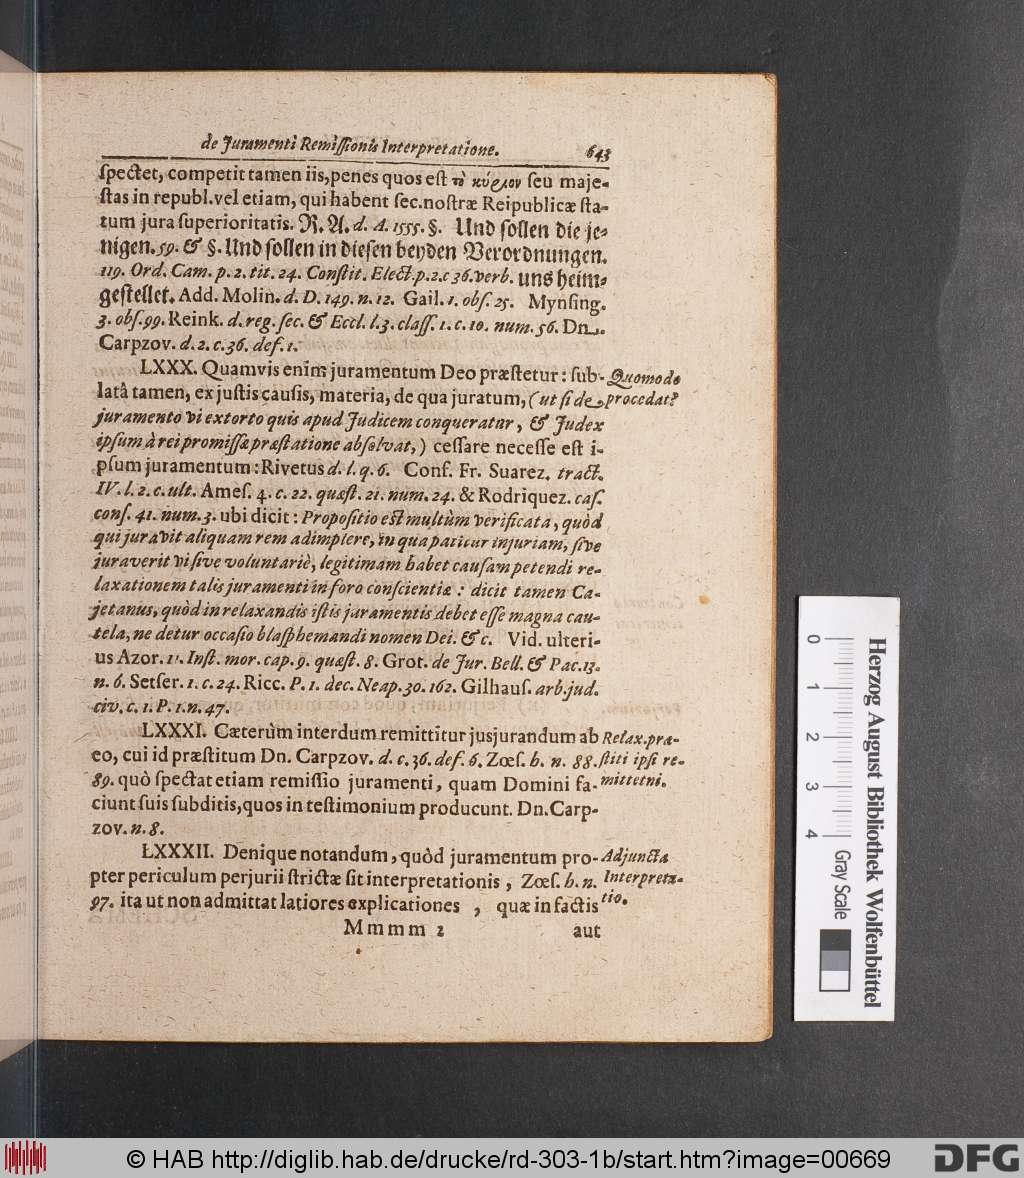 de Juramenti Remissionis Interpretatione. 643
spectet, competit tamen iis, penes quos est τὸ κύριον seu maje-
stas in republ. vel etiam, qui habent sec. nostræ Reipublicæ sta-
tum jura superioritatis. R. A. d. A. 1555. §. Und sollen die je-
nigen. 59. & §. Und sollen in diesen beyden Verordnungen.
119. Ord. Cam. p. 2. tit. 24. Constit. Elect. p. 2. c 36. verb. uns heim-
gestellet. Add. Molin. d. D. 149. n. 12. Gail. 1. obs. 25. Mynsing.
3. obs. 99. Reink. d. reg. sec. & Eccl. l. 3. class. 1. c. 10. num. 56. Dn.
Carpzov. d. 2. c. 36. def. 1.
LXXX. Quamvis enim juramentum Deo præstetur: sub- Quomodo
latâ tamen, ex justis causis, materia, de qua juratum, (ut si de procedat?
juramento vi extorto quis apud Judicem conqueratur, & Judex
ipsum à rei promissæ præstatione absolvat,) cessare necesse est i-
psum juramentum: Rivetus d. l. q. 6. Conf. Fr. Suarez. tract.
IV. l. 2. c. ult. Ames. 4. c. 22. quæst. 21. num. 24. & Rodriquez. cas.
cons. 41. num. 3. ubi dicit: Propositio est multùm verificata, quòd
qui juravit aliquam rem adimplere, in qua patitur injuriam, sive
juraverit vi sive voluntariè, legitimam habet causam petendi re-
laxationem talis juramenti in foro conscientiæ: dicit tamen Ca-
jetanus, quòd in relaxandis istis juramentis debet esse magna cau-
tela, ne detur occasio blasphemandi nomen Dei. & c. Vid. ulteri-
us Azor. 11. Inst. mor. cap. 9. quæst. 8. Grot. de Jur. Bell. & Pac. 13.
n. 6. Setser. 1. c. 24. Ricc. P. 1. dec. Neap. 30. 162. Gilhaus. arb. jud.
civ. c. 1. P. 1. n. 47.
LXXXI. Cæterùm interdum remittitur jusjurandum ab Relax. præ-
eo, cui id præstitum Dn. Carpzov. d. c. 36. def. 6. Zœs. h. n. 88. stiti ipsi re-
89. quò spectat etiam remissio juramenti, quam Domini fa- mittetni.
ciunt suis subditis, quos in testimonium producunt. Dn. Carp-
zov. n. 8.
LXXXII. Denique notandum, quòd juramentum pro- Adjuncta
pter periculum perjurii strictæ sit interpretationis, Zœs. h. n. Interpreta-
97. ita ut non admittat latiores explicationes, quæ in factis tio.
Mmmm 2 aut
0 1 2 3 4
Gray Scale
Herzog August Bibliothek Wolfenbüttel
© HAB http://diglib.hab.de/drucke/rd-303-1b/start.htm?image=00669
DFG